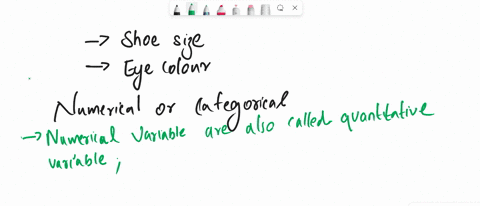 → Shoe size
→ Eye colour
Numerical or Categorical
→ Numerical variable are also called quantitative
variable;